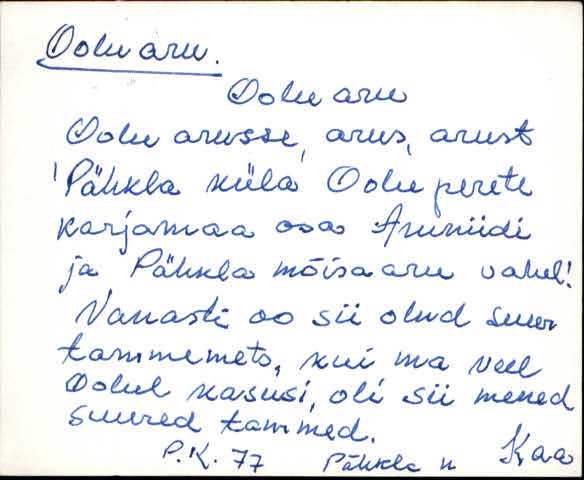 Oolu aru.
Oolu aru
Oolu arusse, arus, arust
'Pähkla küla Oolu perete
karjamaa osa Aruniidi
ja Pähkla mõisa aru vahel!
Vanasti oo sii olnd suur
tammemets, kui ma veel
Oolul kasusi, oli sii mened
suured tammed.
P.K. 77 Pähkla k Kaa